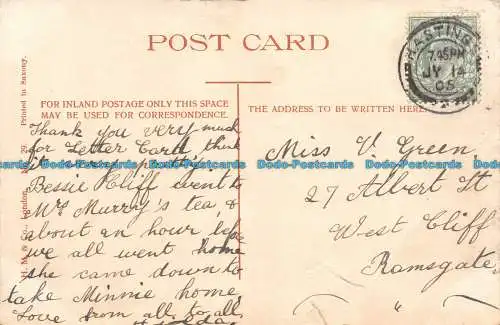 POST CARD
HASTINGS
7.45 PM
JY 14
05
FOR INLAND POSTAGE ONLY THIS SPACE
MAY BE USED FOR CORRESPONDENCE.
THE ADDRESS TO BE WRITTEN HERE
Printed in Saxony.
London.
Thank you very much
for Letter Card, think
it very pretty
Bessie Cliff went to
Mrs Murry's tea, &
about an hour before
we all went home
she came down to
take Minnie home,
Love from all, to all,
Miss V. Green,
27 Albert St
West Cliff
Ramsgate
Dodo-Postcards Dodo-Postcards Dodo-Postcards Dodo-Postcards Dodo-Postcards